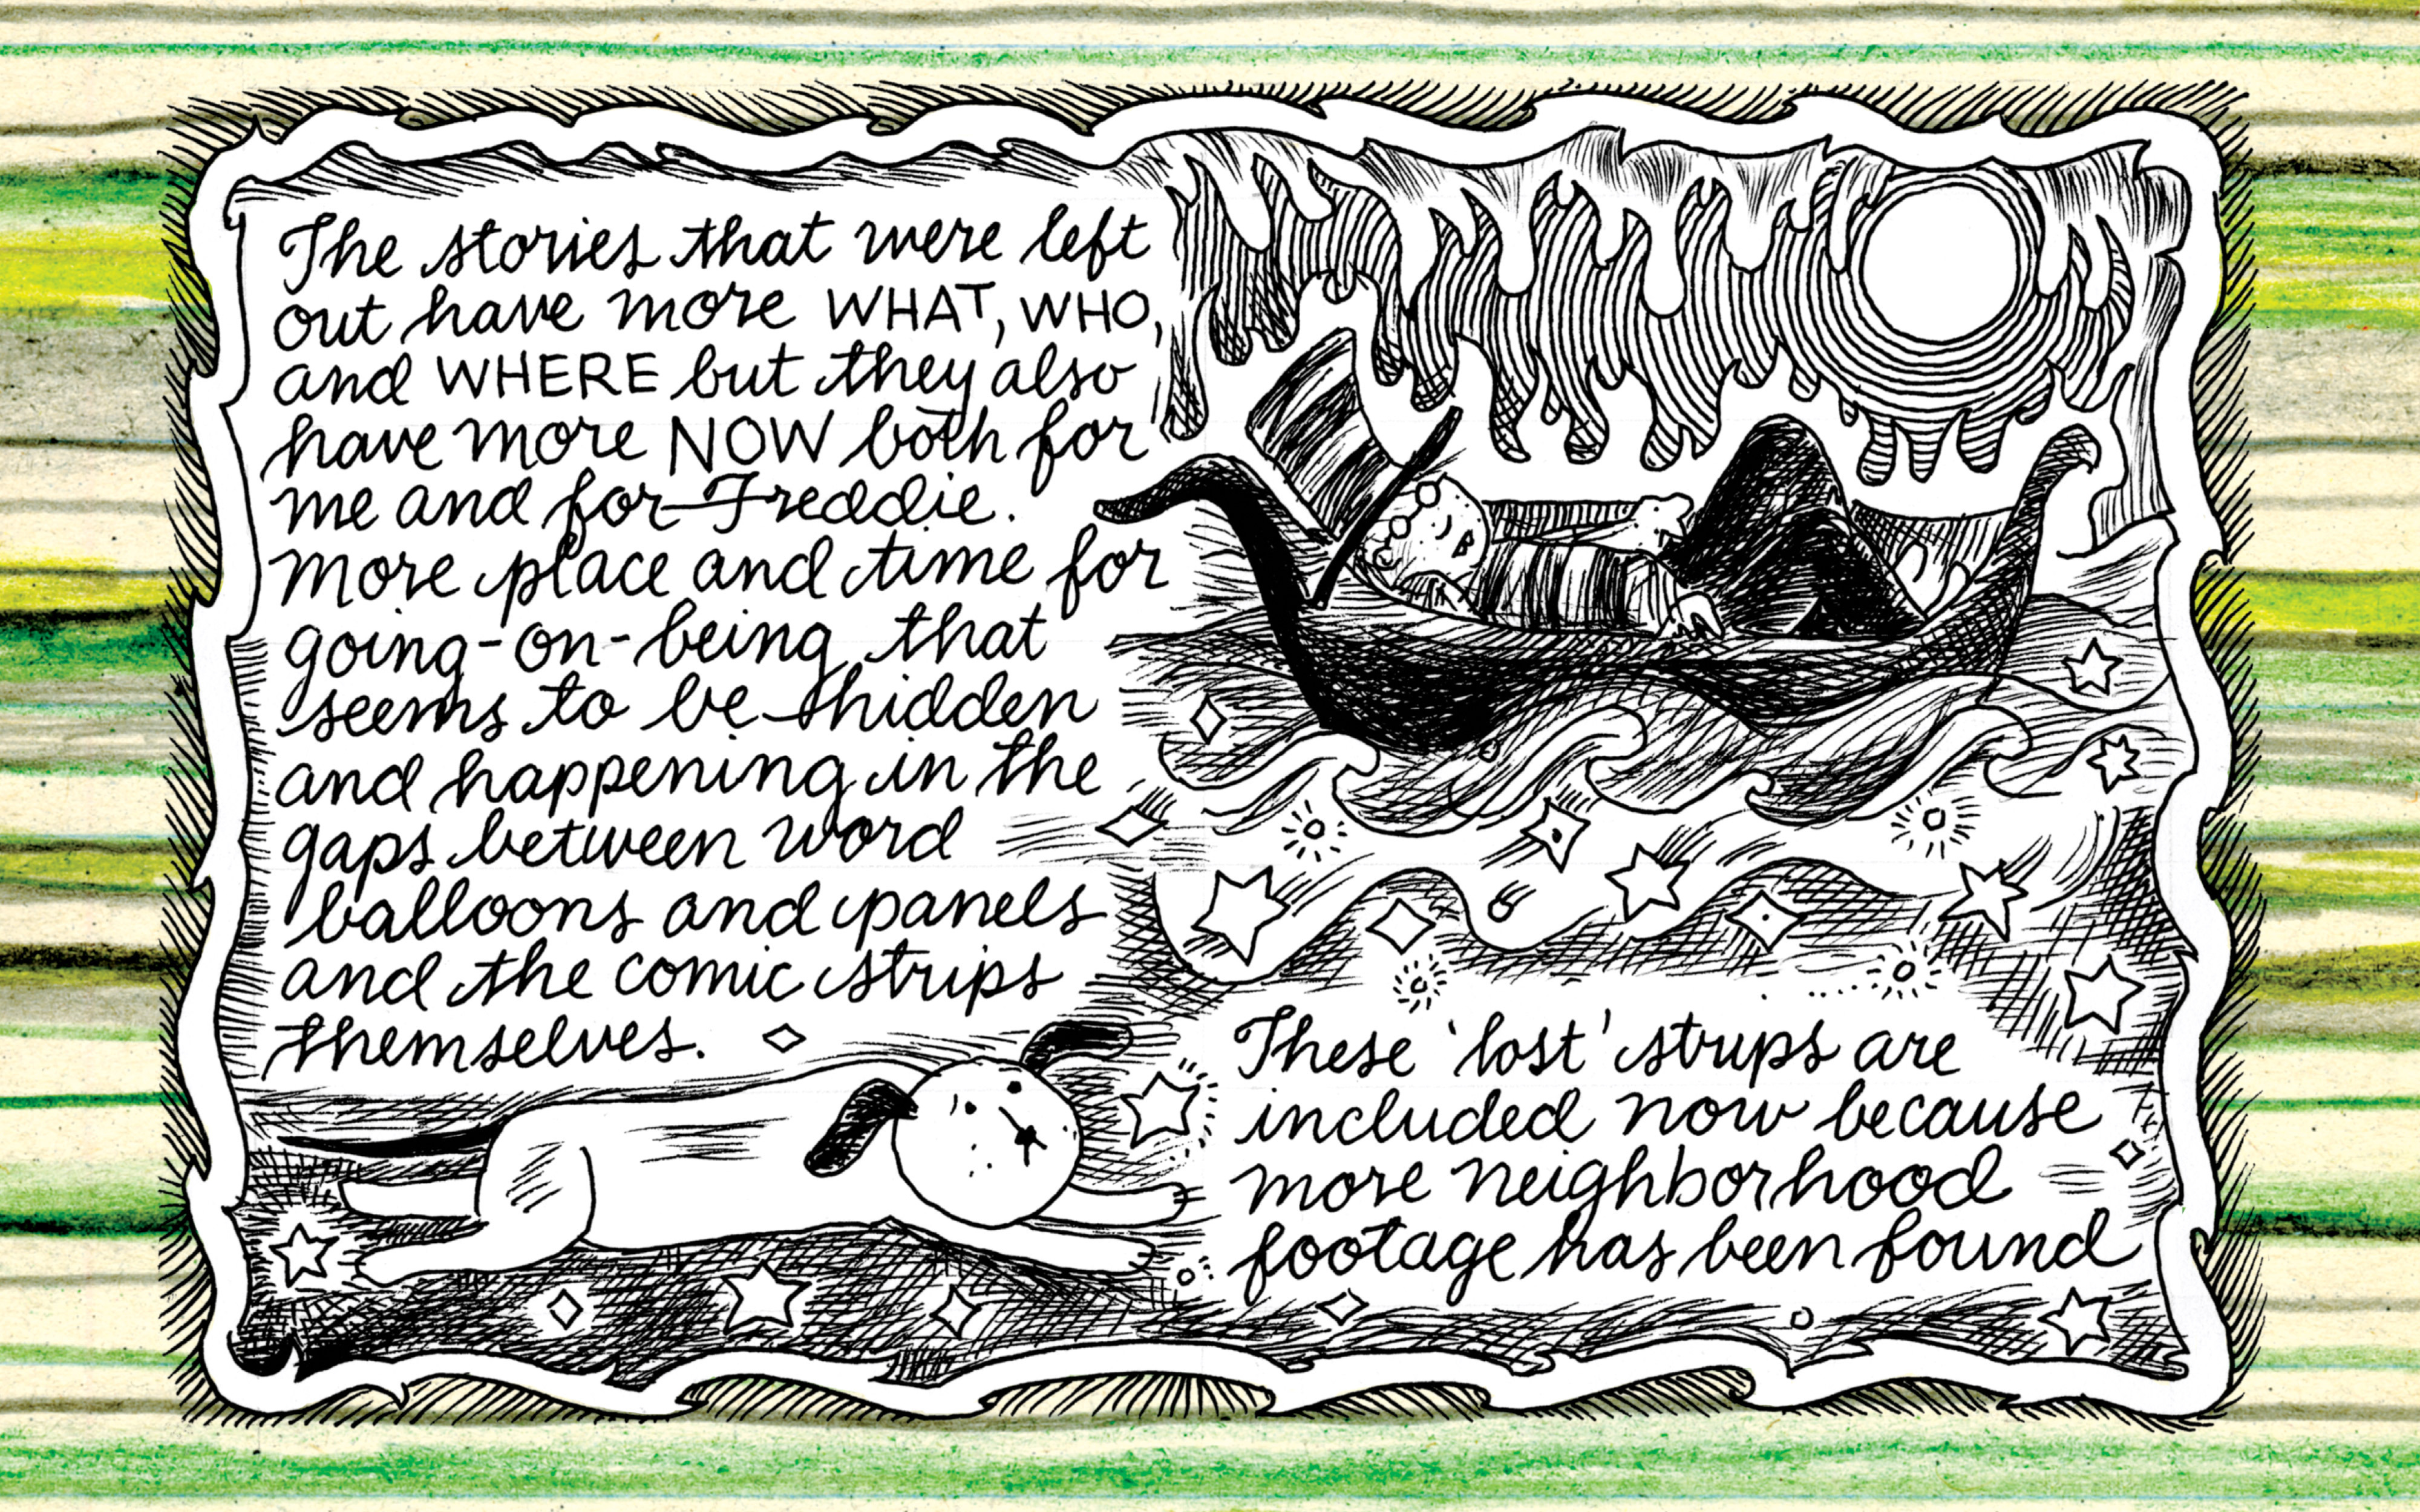 The stories that were left
out have more WHAT, WHO,
and WHERE but they also
have more NOW both for
me and for Freddie.
more place and time for
going-on-being that
seems to be hidden
and happening in the
gaps between word
balloons and panels
and the comic strips
themselves.
These 'lost' strips are
included now because
more neighborhood
footage has been found